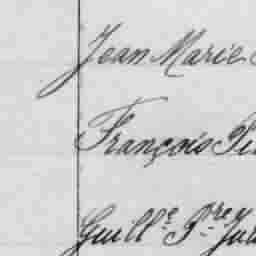 Jean Marie
François
Guill.e P.re